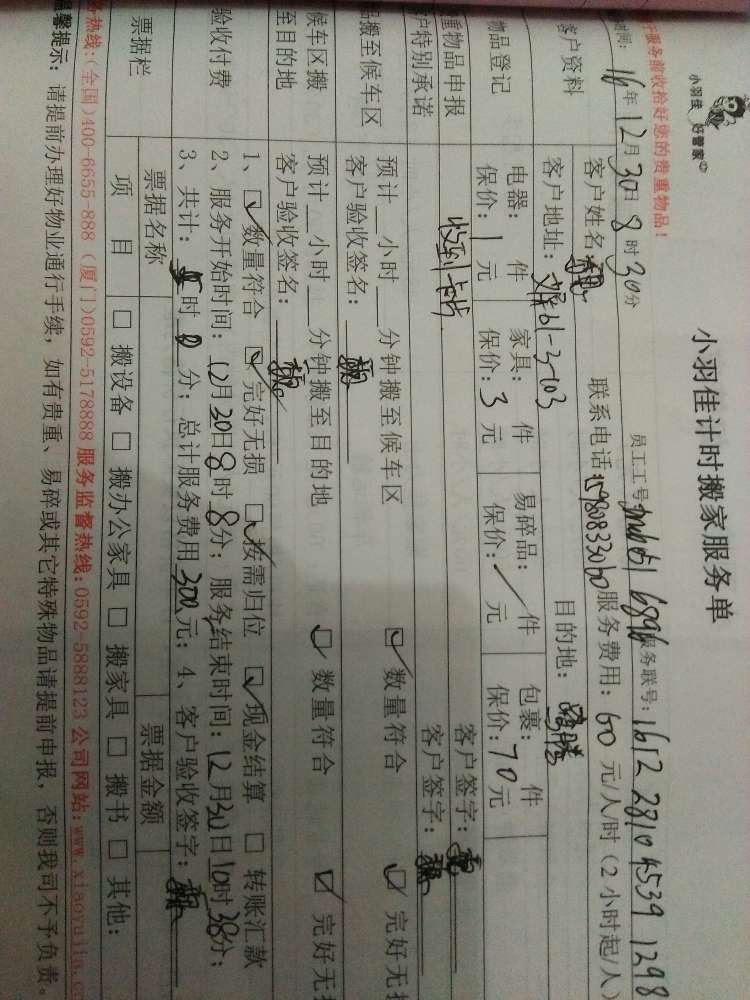 小羽佳 好管家
小羽佳计时搬家服务单
服务前收拾好您的贵重物品！
时间：16年12月30日8时30分 员工工号 服务联号：1612 2810 4539 1298
客户资料
客户姓名 联系电话 服务费用：60 元/人/时（2小时起/人）
客户地址： 61-3-103 目的地：
物品登记
电器： 件 家具： 件 易碎品： 件 包裹： 件
保价：1元 保价：3元 保价：/元 保价：70元
重物品申报 客户签字：
户特别承诺 客户签字：
搬至候车区
预计__小时__分钟搬至候车区 ☑ 数量符合 ☑ 完好无损
客户验收签名：
候车区搬至目的地
预计__小时__分钟搬至目的地 ☑ 数量符合 ☑ 完好无损
客户验收签名：
验收付费
1、☑ 数量符合 ☑ 完好无损 ☑ 按需归位 ☑ 现金结算 □ 转账汇款
2、服务开始时间：12月30日8时8分；服务结束时间：12月30日10时38分；
3、共计： 时 分；总计服务费用300元；4、客户验收签字：
票据栏
票据名称 票据金额
项 目 □ 搬设备 □ 搬办公家具 □ 搬家具 □ 搬书 □ 其他：
务热线：（全国）400-6655-888（厦门）0592-5178888 服务监督热线：0592-5888123 公司网站：www.xiaoyujia.c
温馨提示：请提前办理好物业通行手续，如有贵重、易碎或其它特殊物品请提前申报，否则我司不予负责。